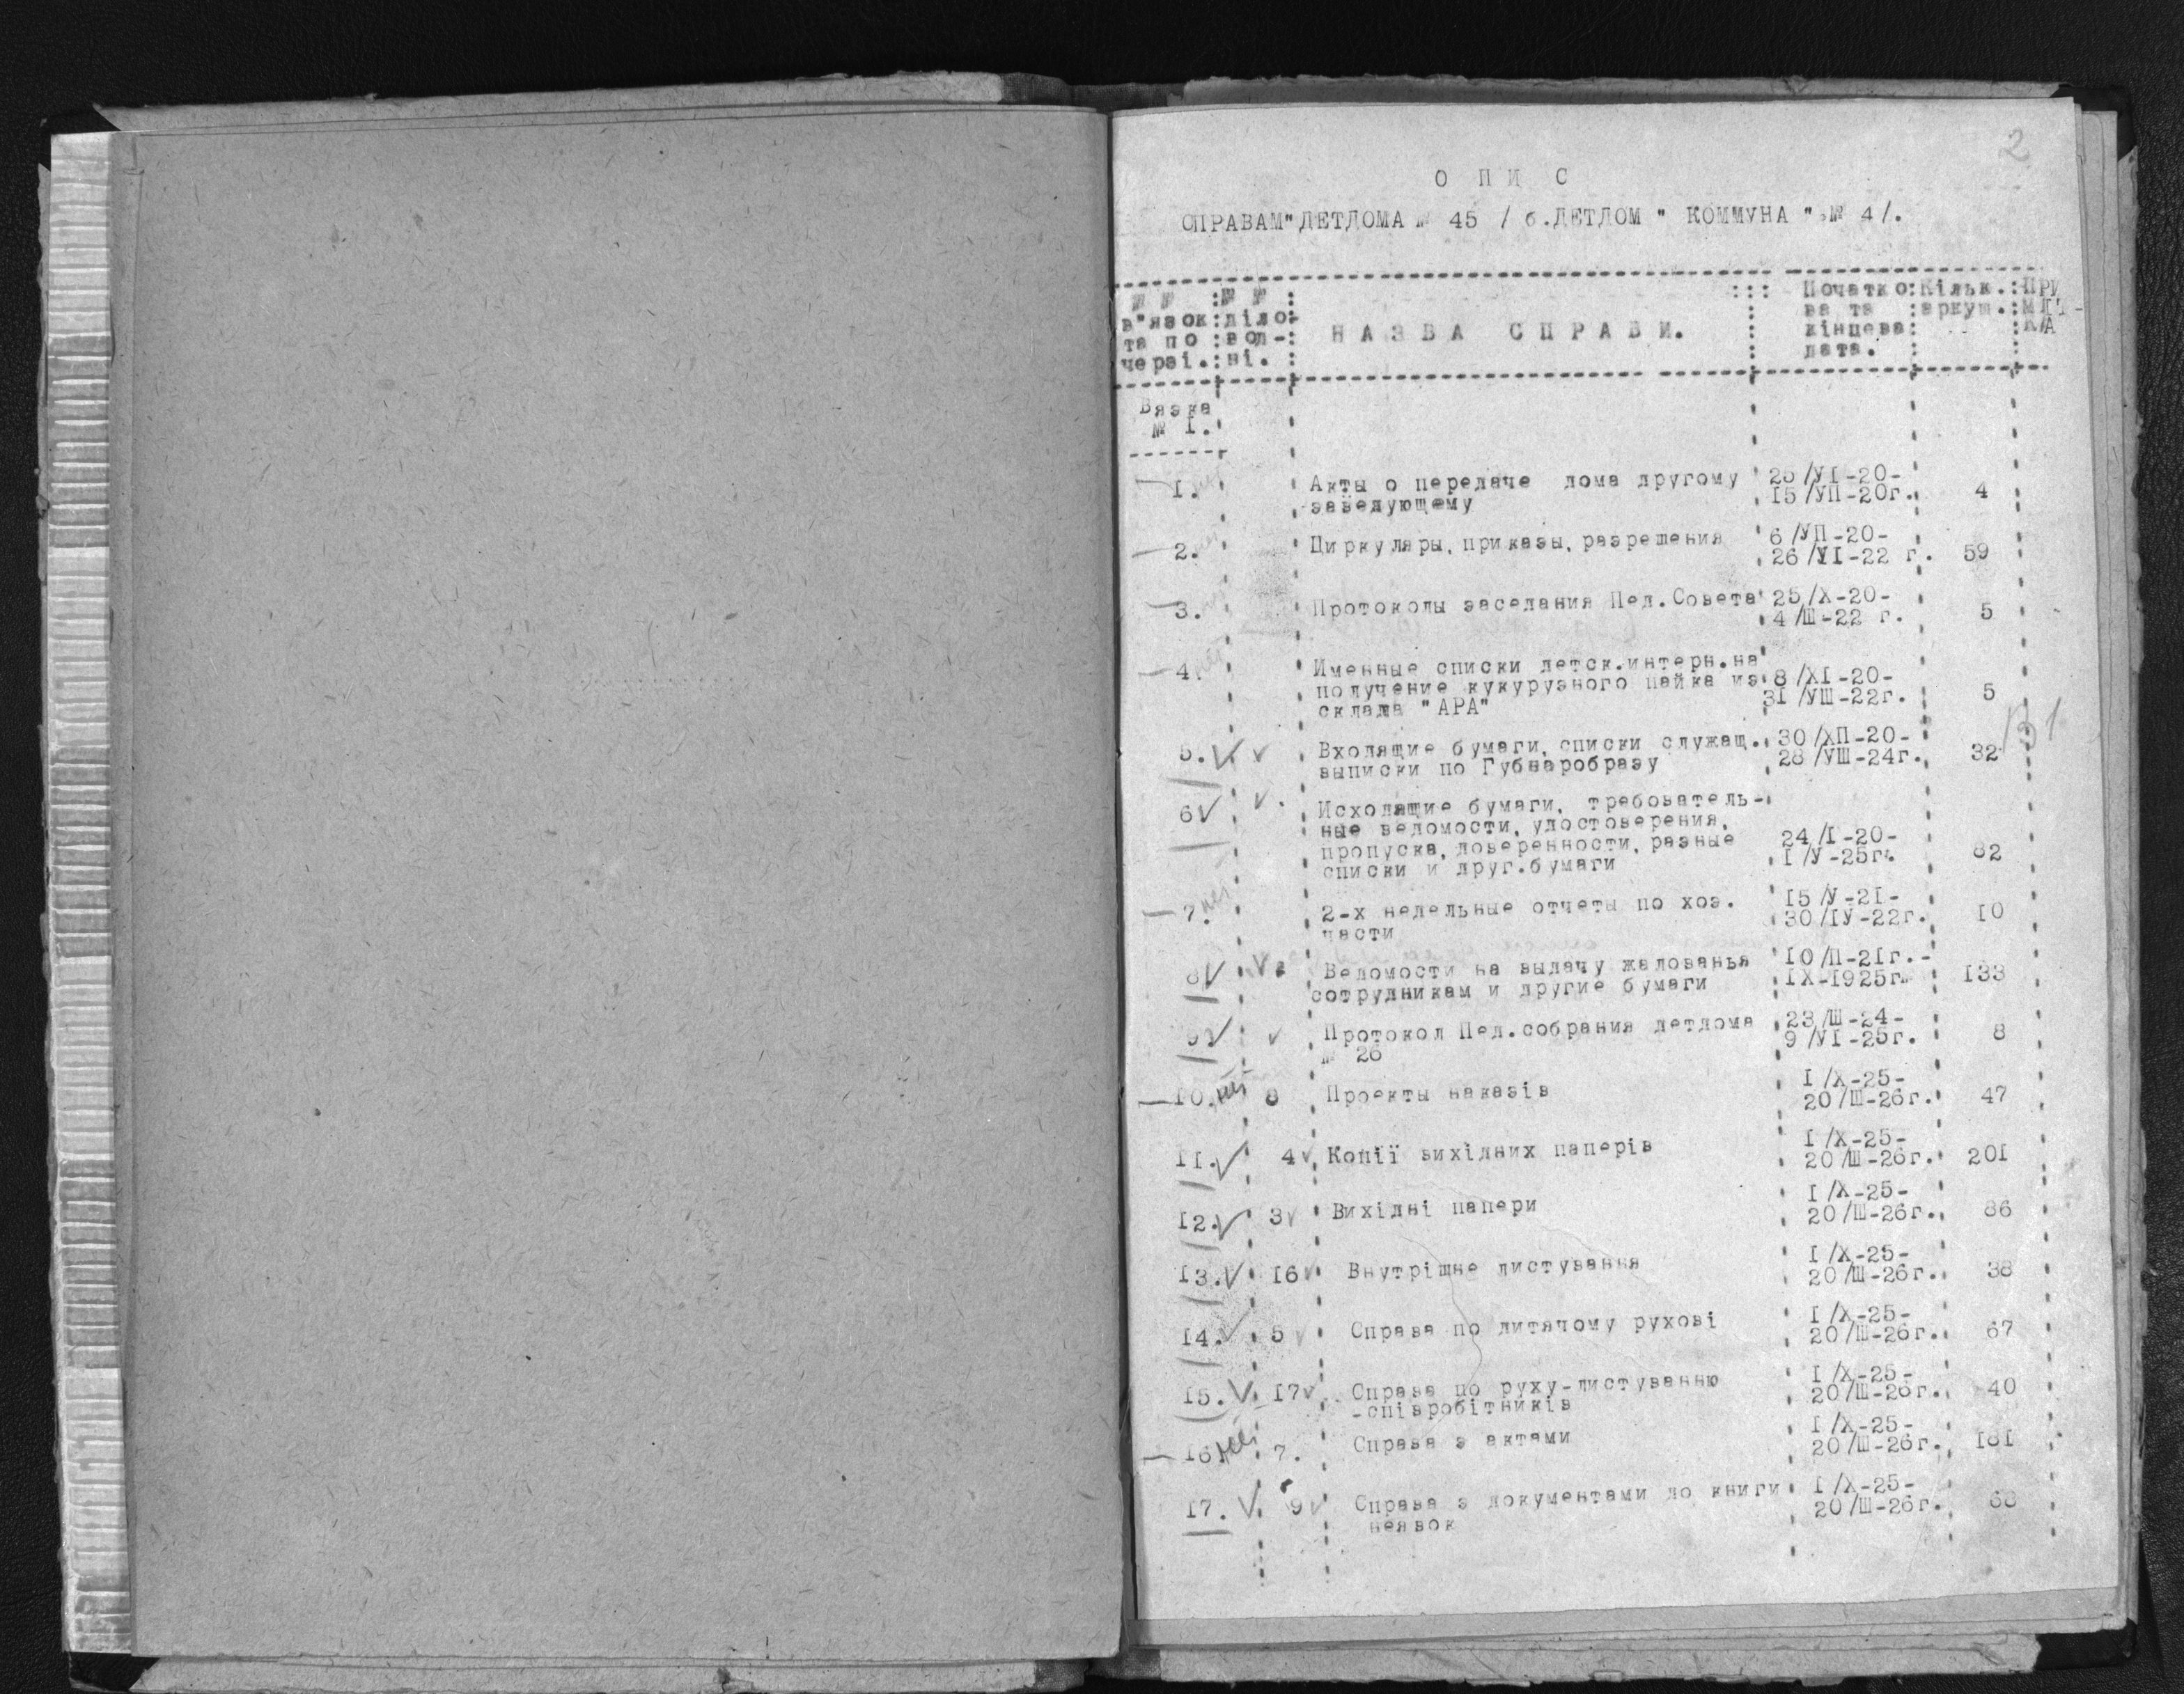 2
О П И С
СПРАВАМ "ДЕТДОМА № 45 / б.ДЕТДОМ " КОММУНА " № 4/.
№ № в"язок та по черзі. : № № діло- вод- ні. : НАЗВА СПРАВИ. : Початко ва та кінцева дата. : Кільк. аркуш. : ПРИ
Вязка
№ I.
I. Акты о передаче дома другому 25/УI-20-
заведующему 15/УП-20г. 4
2. Циркуляры, приказы, разрешения 6/УП-20-
26/УI-22 г. 59
3. Протоколы заседания Пед.Совета 25/Х-20-
4/Ш-22 г. 5
4. Именные списки детск.интерн.на
получение кукурузного пайка из 8/ХI-20-
склада "АРА" 31/УШ-22г. 5
5. Входящие бумаги, списки служащ. 30/ХП-20-
выписки по Губнаробразу 28/УШ-24г. 32
6 Исходящие бумаги, требователь-
ные ведомости, удостоверения,
пропуска, доверенности, разные 24/I-20-
списки и друг.бумаги I/У-25г. 82
7. нет 2-х недельные отчеты по хоз. 15/У-2I-
части 30/IУ-22г. I0
8 Ведомости на выдачу жалованья I0/П-2Iг.-
сотрудникам и другие бумаги IХ-I925г. I33
9 Протокол Пед.собрания детдома 23/Ш-24-
№ 26 9/УI-25г. 8
I0. нет 8 Проекты наказів I/Х-25-
20/Ш-26г. 47
II. 4 Копії вихідних паперів I/Х-25-
20/Ш-26г. 20I
I2. 3 Вихідні папери I/Х-25-
20/Ш-26г. 86
I3. I6 Внутрішне листування I/Х-25-
20/Ш-26г. 38
I4. 5 Справа по дитячому рухові I/Х-25-
20/Ш-26г. 67
I5. I7 Справа по руху-листуванню I/Х-25-
-співробітників 20/Ш-26г. 40
I6 нет 7. Справа з актами I/Х-25-
20/Ш-26г. I8I
I7. 9 Справа з документами до книги I/Х-25-
неявок 20/Ш-26г. 68